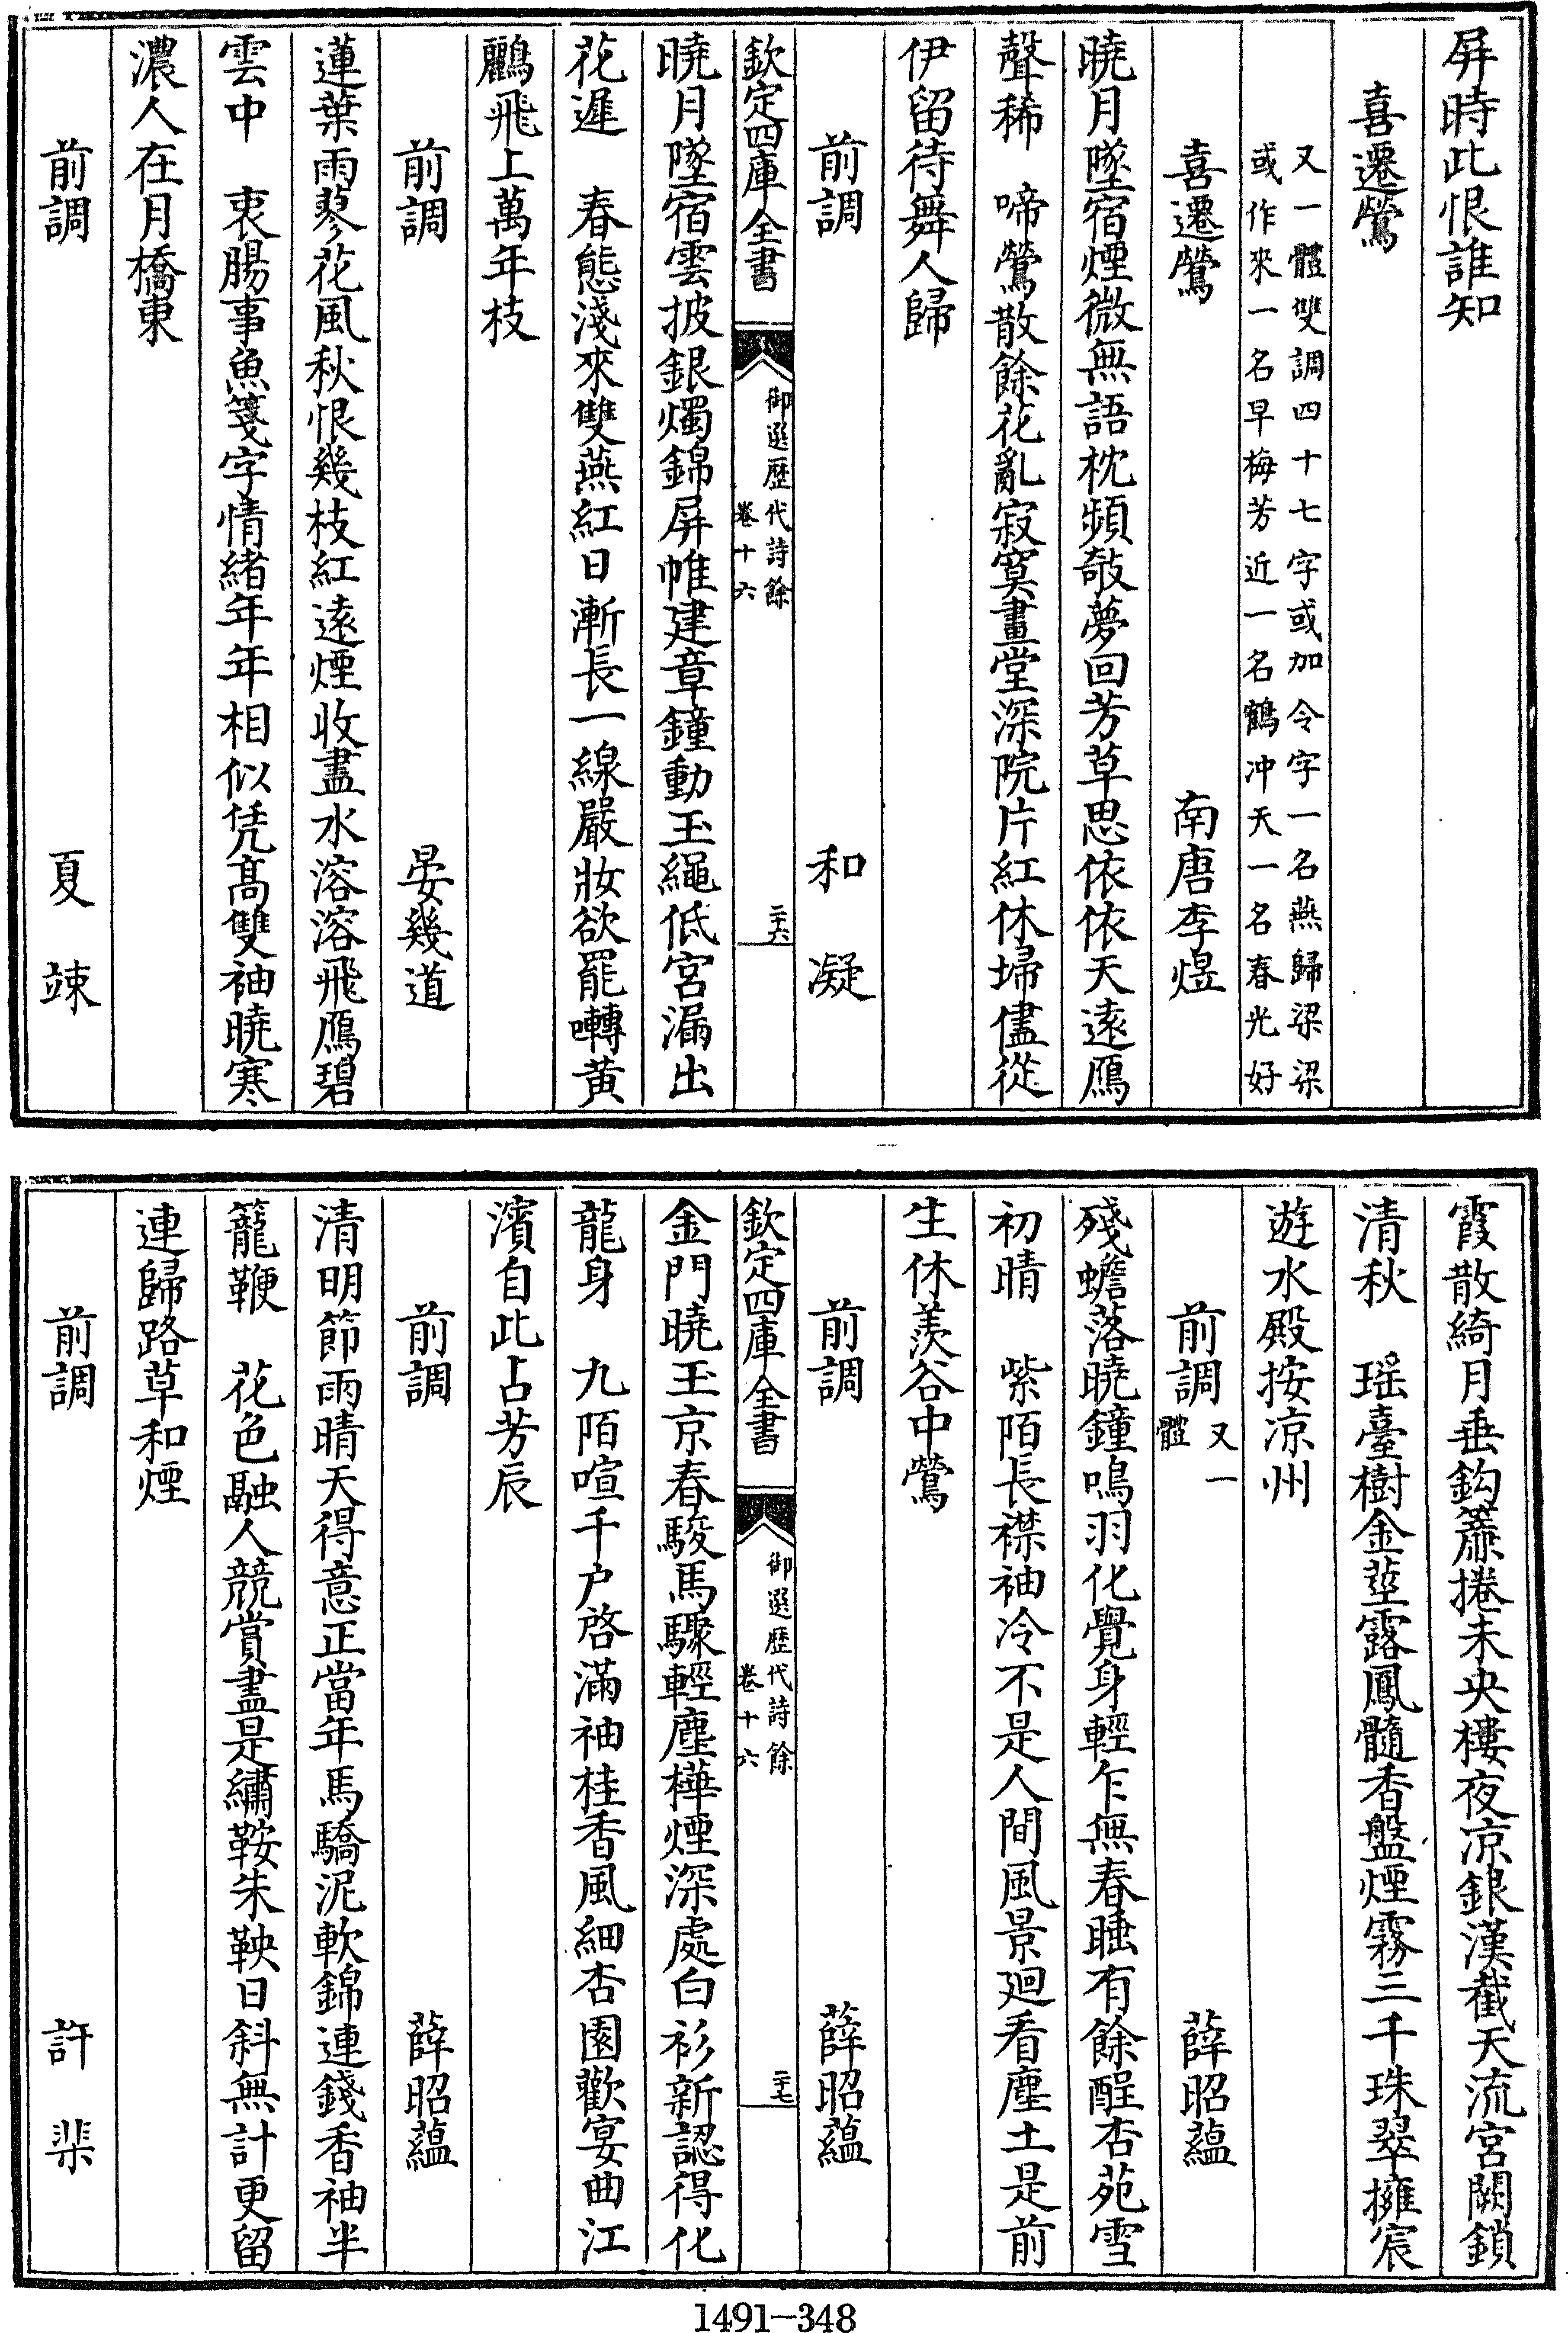 屏時此恨誰知
喜遷鶯
又一體雙調四十七字或加令字一名燕歸梁梁
或作來一名早梅芳近一名鶴冲天一名春光好
喜遷鶯　南唐李煜
曉月墜宿煙微無語枕頻敧夢回芳草思依依天遠鴈
聲稀　啼鶯散餘花亂寂寞畫堂深院片紅休埽儘從
伊留待舞人歸
前調　和凝
欽定四庫全書　御選歴代詩餘　卷十六　二十六
曉月墜宿雲披銀燭錦屏帷建章鐘動玉繩低宮漏出
花遲　春態淺來雙燕紅日漸長一線嚴妝欲罷囀黃
鸝飛上萬年枝
前調　晏幾道
蓮葉雨蓼花風秋恨幾枝紅遠煙收盡水溶溶飛鴈碧
雲中　衷腸事魚箋字情緒年年相似凭髙雙袖曉寒
濃人在月橋東
前調　夏竦
霞散綺月垂鈎簾捲未央樓夜凉銀漢截天流宮闕鎖
清秋　瑶臺樹金莖露鳳髓香盤煙霧三千珠翠擁宸
遊水殿按凉州
前調 又一體　薛昭蘊
殘蟾落曉鐘鳴羽化覺身輕乍無春睡有餘酲杏苑雪
初晴　紫陌長襟袖冷不是人間風景廻看塵土是前
生休羨谷中鶯
前調　薛昭蘊
欽定四庫全書　御選歴代詩餘　卷十六　二十七
金門曉玉京春駿馬驟輕塵樺煙深處白衫新認得化
龍身　九陌喧千户啓滿袖桂香風細杏園歡宴曲江
濱自此占芳辰
前調　薛昭蘊
清明節雨晴天得意正當年馬驕泥軟錦連錢香袖半
籠鞭　花色融人競賞盡是繡鞍朱鞅日斜無計更留
連歸路草和煙
前調　許棐
1491-348